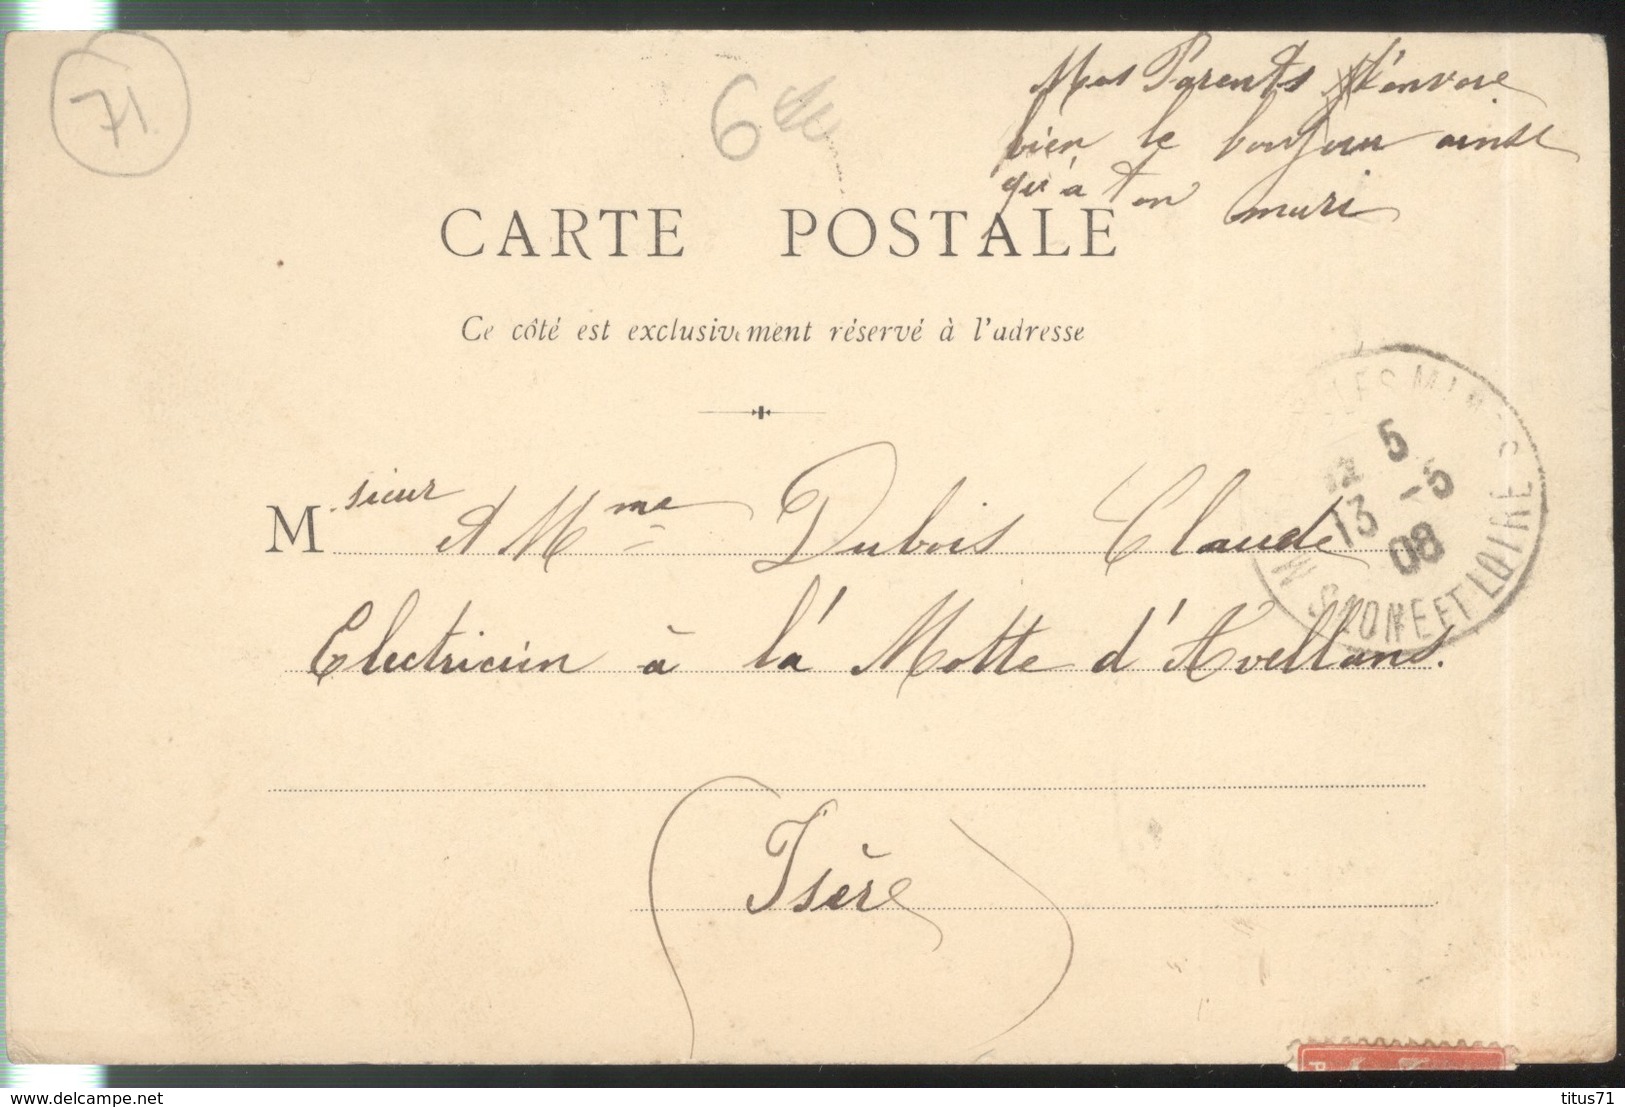 71
6
Mes Parents t'envoie
bien le bonjour ainsi
qu'à ton mari
CARTE POSTALE
Ce côté est exclusivement réservé à l'adresse
LES MINES
5
12
13 -5
08
SAONE ET LOIRE
Msieur et Mme Dubois Claude
Electricien à la Motte d'Avellans.
(Isère)
delcampe.net
titus71